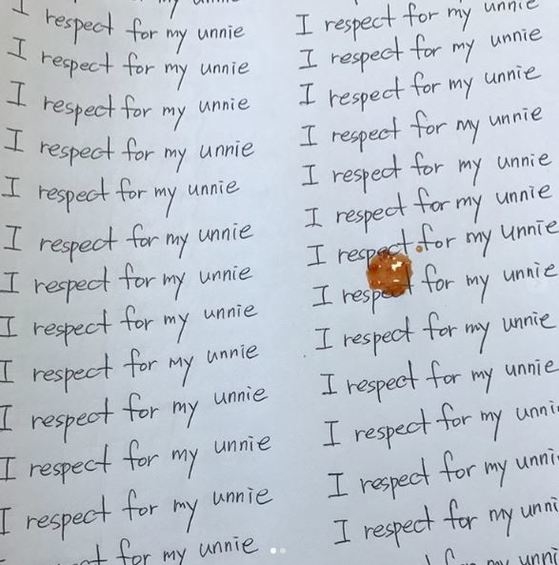 I respect for my unnie
I respect for my unnie
I respect for my unnie
I respect for my unnie
I respect for my unnie
I respect for my unnie
I respect for my unnie
I respect for my unnie
I respect for my unnie
I respect for my unnie
I respect for my unnie
I respect for my unnie
for my unnie
I respect for my unnie
I respect for my unnie
I respect for my unnie
I respect for my unnie
I respect for my unnie
I respect for my unnie
I respect for my unnie
I respect for my unnie
I respect for my unnie
I respect for my unnie
I respect for my unni
I respect for my unni
I respect for my unni